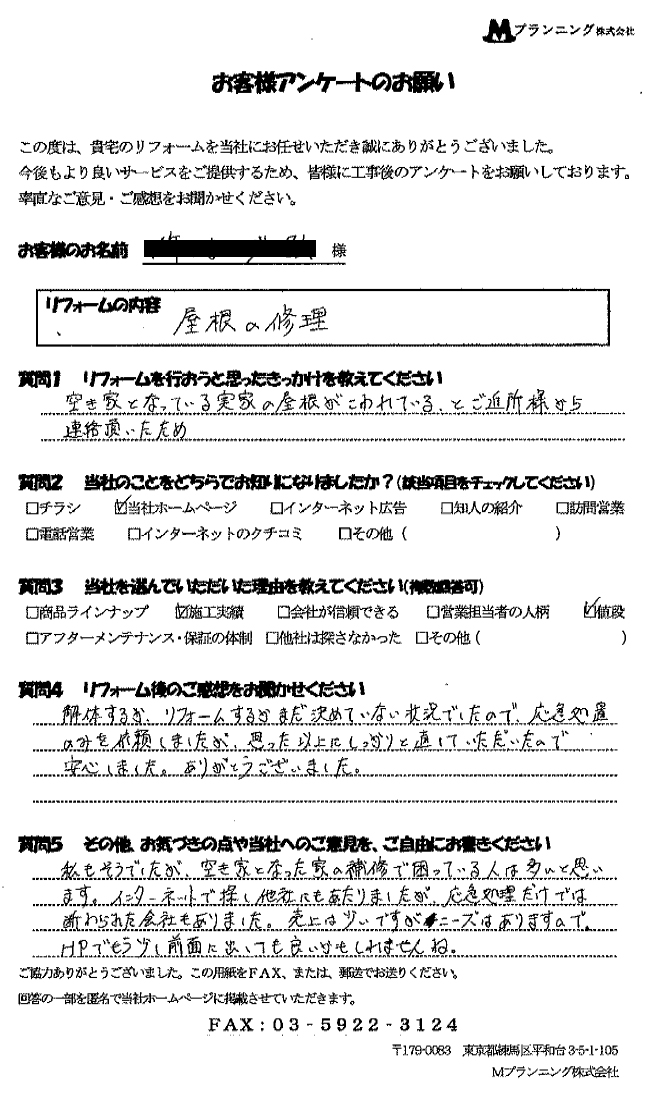 Mプランニング株式会社
お客様アンケートのお願い
この度は、貴宅のリフォームを当社にお任せいただき誠にありがとうございました。
今後もより良いサービスをご提供するため、皆様に工事後のアンケートをお願いしております。
率直なご意見・ご感想をお聞かせください。
お客様のお名前 様
リフォームの内容
屋根の修理
質問1 リフォームを行おうと思ったきっかけを教えてください
空き家となっている実家の屋根がこわれている、とご近所様から
連絡頂いたため
質問2 当社のことをどちらでお知りになりましたか?(該当項目をチェックしてください)
□チラシ ☑当社ホームページ □インターネット広告 □知人の紹介 □訪問営業
□電話営業 □インターネットのクチコミ □その他 ( )
質問3 当社を選んでいただいた理由を教えてください(複数回答可)
□商品ラインナップ ☑施工実績 □会社が信頼できる □営業担当者の人柄 ☑値段
□アフターメンテナンス・保証の体制 □他社は探さなかった □その他 ( )
質問4 リフォーム後のご感想をお聞かせください
解体するか、リフォームするかまだ決めていない状況でしたので、応急処置
のみを依頼しましたが、思った以上にしっかりと直していただいたので
安心しました。ありがとうございました。
質問5 その他、お気づきの点や当社へのご意見を、ご自由にお書きください
私もそうでしたが、空き家となった家の補修で困っている人は多いと思い
ます。インターネットで探し他社にもあたりましたが、応急処理だけでは
断わられた会社もありました。売上は少いですがニーズはありますので、
HPでもう少し前面に出いても良いかもしれませんね。
ご協力ありがとうございました。この用紙をFAX、または、郵送でお送りください。
回答の一部を匿名で当社ホームページに掲載させていただきます。
FAX:03-5922-3124
〒179-0083 東京都練馬区平和台3-5-1-105
Mプランニング株式会社